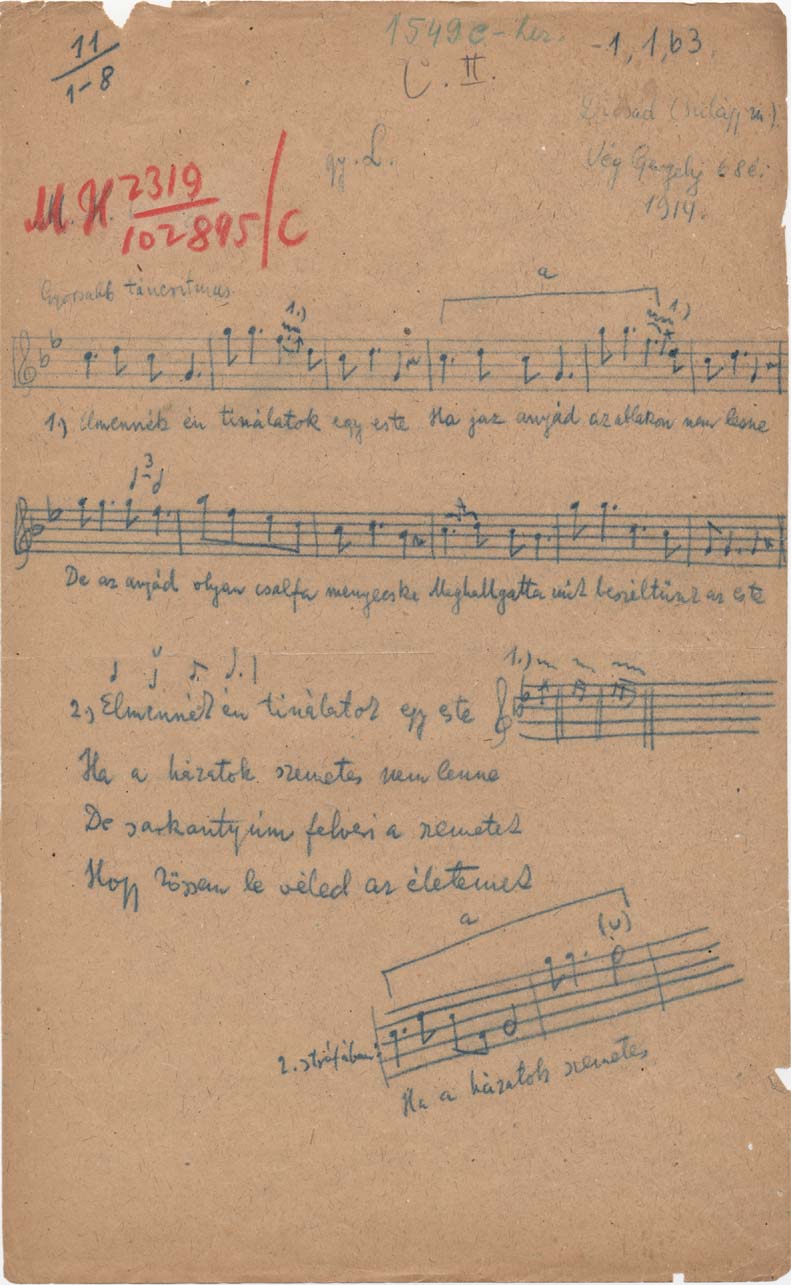 11
1-8
1549c
-1, 1, b3
C. II.
gy. L.
Diósad (Szilágy m.)
Vég Gergely 68 é.
1914.
M. H. 2319
102895/C
Gyorsabb táncritmus
a
1.) 1.)
1.) Elmennék én tinálatok egy este Ha jaz anyád az ablakon nem lesne
3
De az anyád olyan csalfa menyecske Meghallgatta mit beszéltünk az este
1.)
2.) Elmennék én tinálatok egy este
Ha a házatok szemetes nem lenne
De sarkantyúm felveri a szemetet
Hopp le véled az életemet
a
(u)
2. strófában:
Ha a házatok szemetes